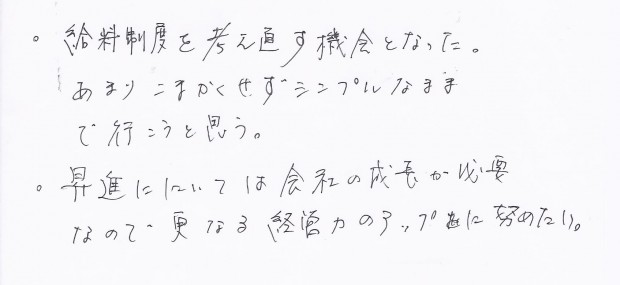 。給料制度を考え直す機会となった。
あまりこまかくせずシンプルなまま
で行こうと思う。
。昇進については会社の成長が必要
なので更なる経営力のアップに努めたい。